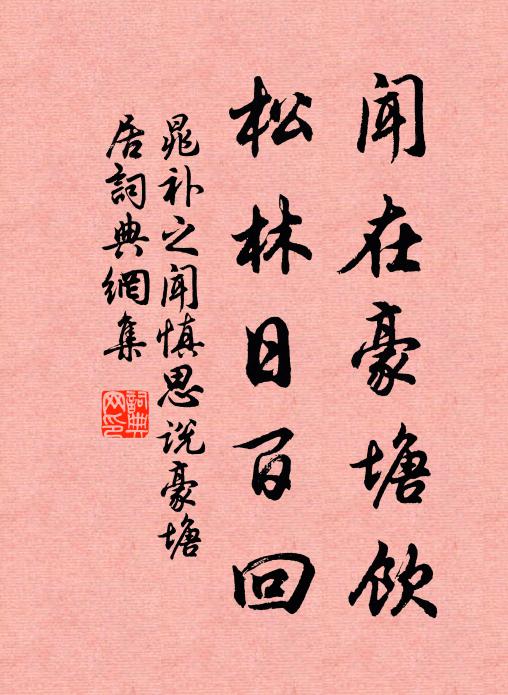 闻在豪塘饮
松林日百回
晁补之闻慎思说豪塘
居詞典網集
詞典
网印